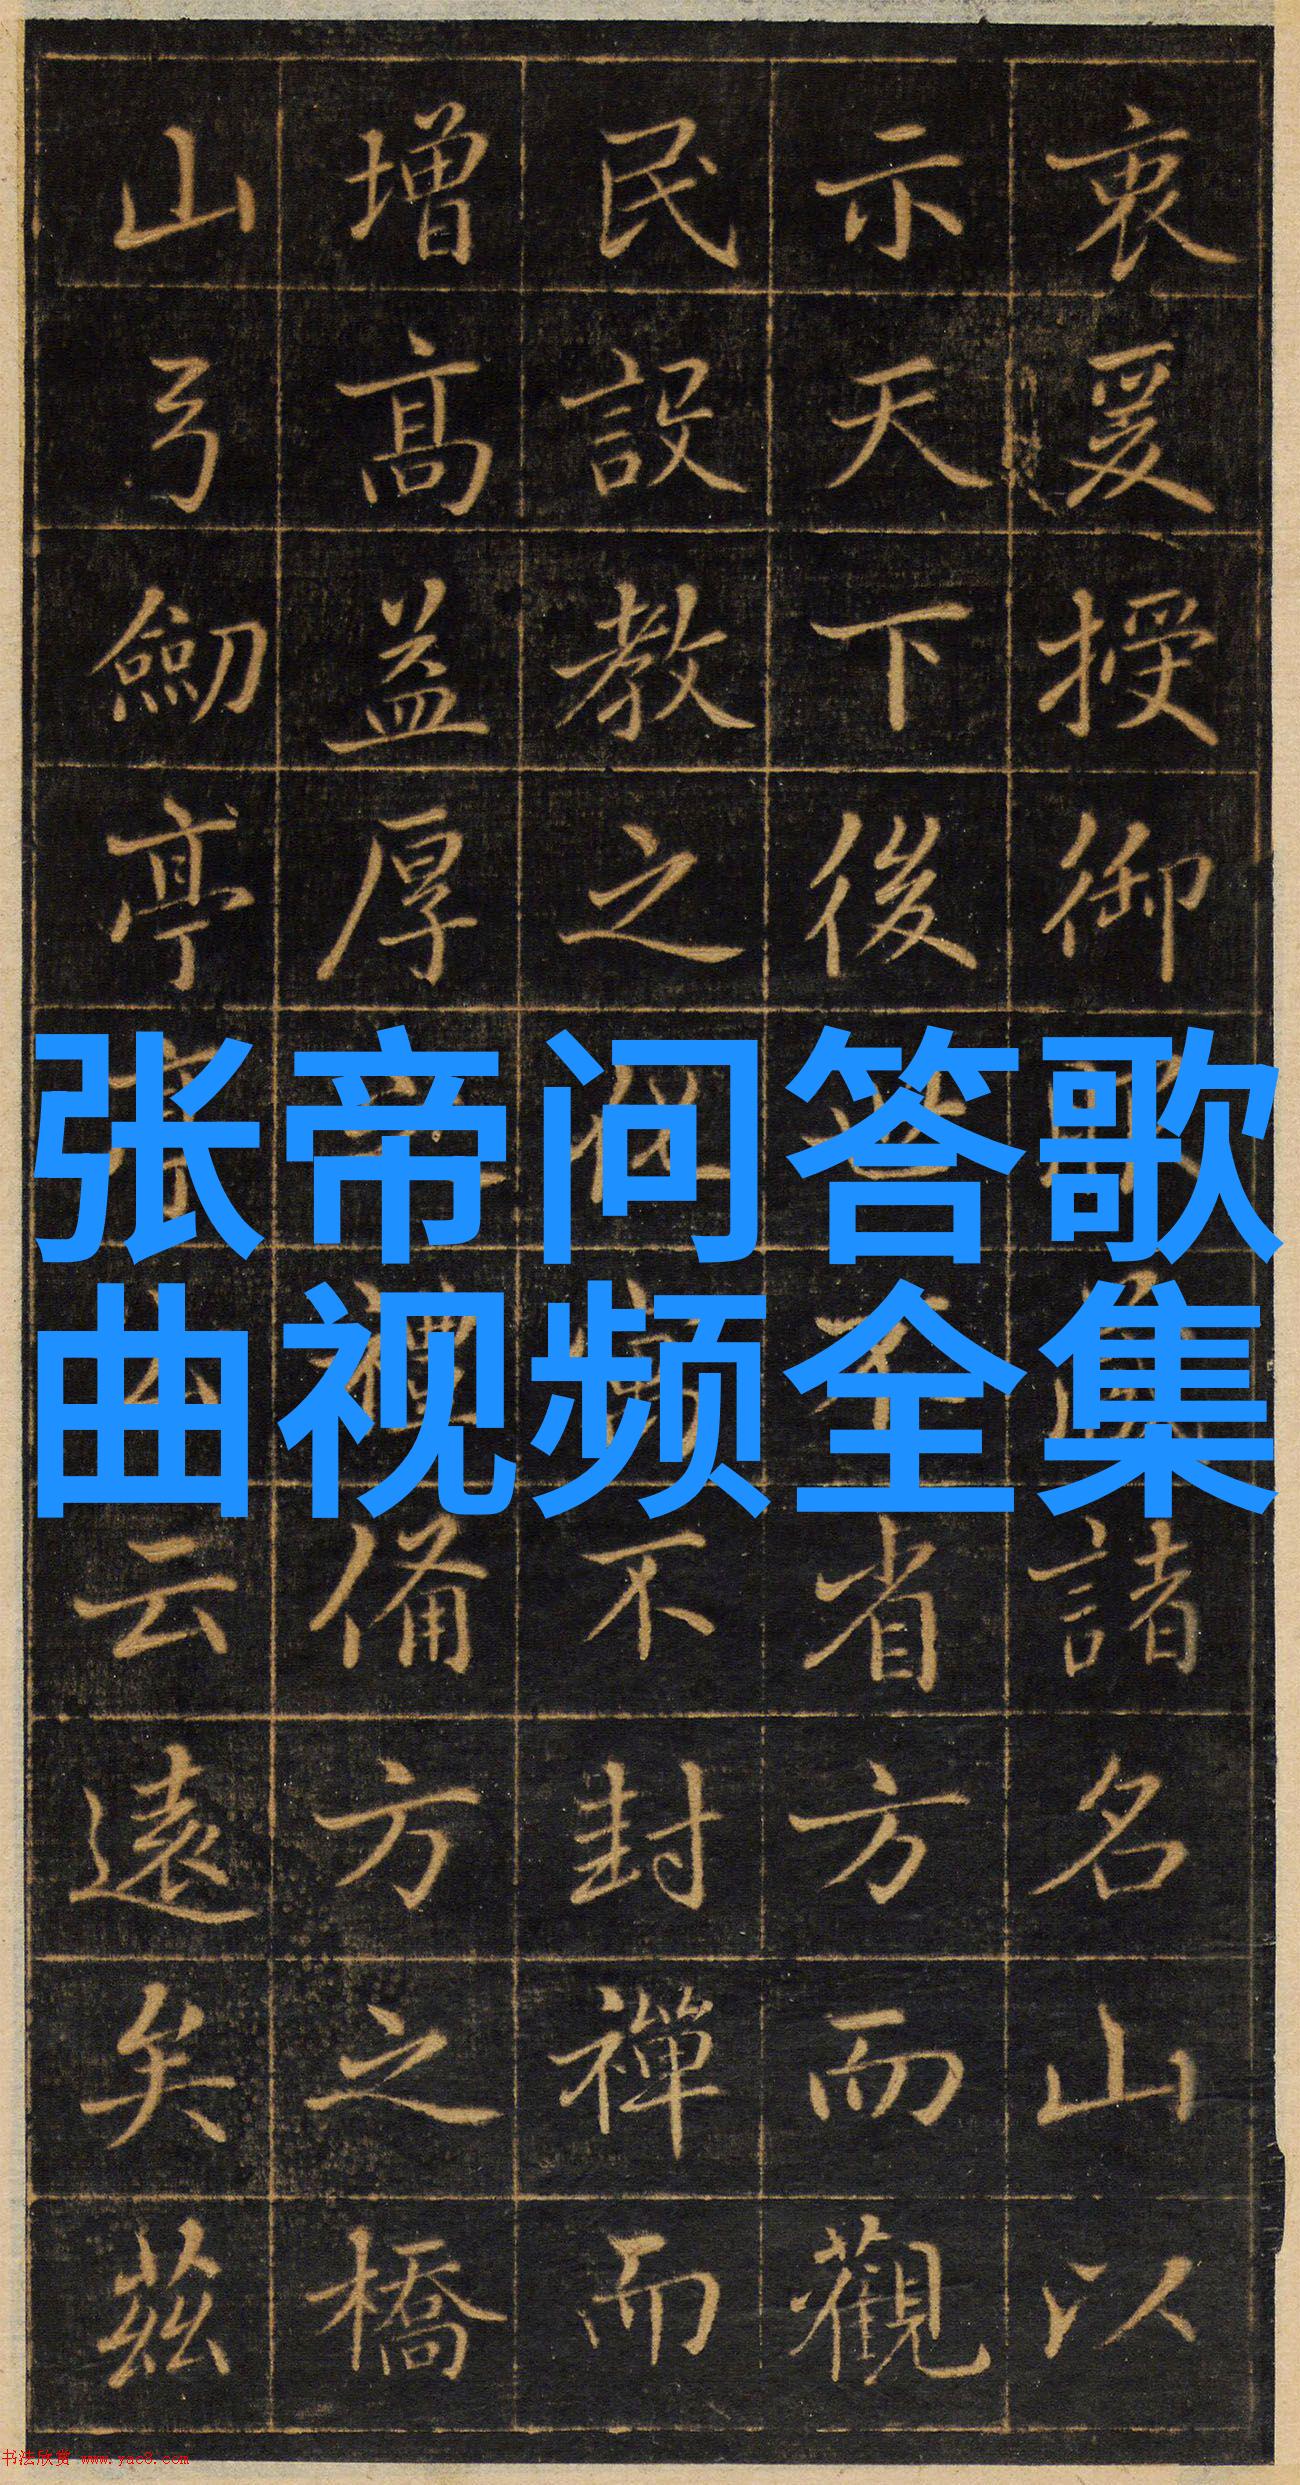 衷爰授御
諸名山以
示天下後
省方而觀
民設教之
不封禪而
增高益厚
備方之橋
山弓劒亭
云遠矣茲
张帝问答歌
曲视频全集
书法欣赏 www.yac8.com